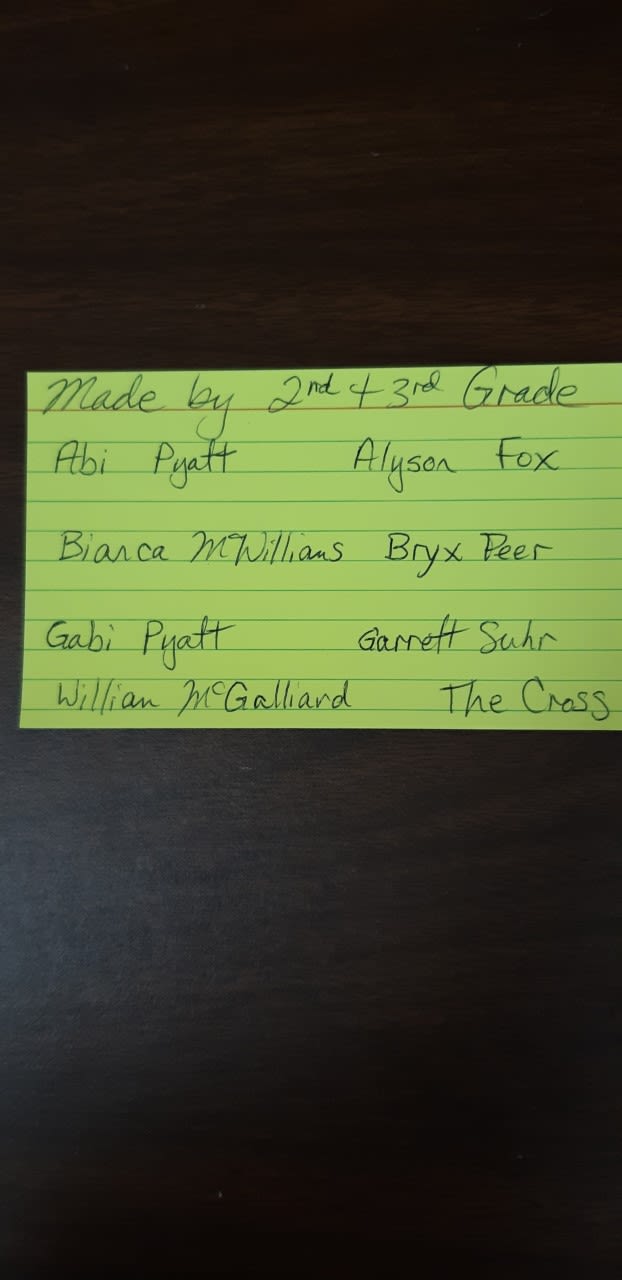 Made by 2nd + 3rd Grade
Abi Pyatt Alyson Fox
Bianca McWillians Bryx Peer
Gabi Pyatt Garrett Suhr
Willian McGalliard The Cross